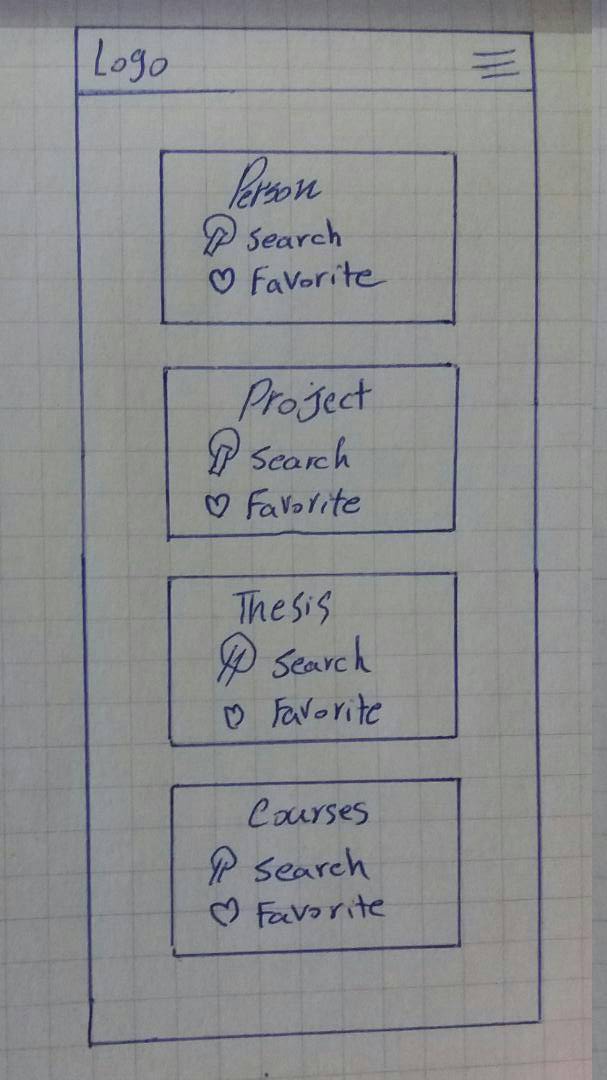 Logo
Person
Search
Favorite
Project
Search
Favorite
Thesis
Search
Favorite
Courses
Search
Favorite